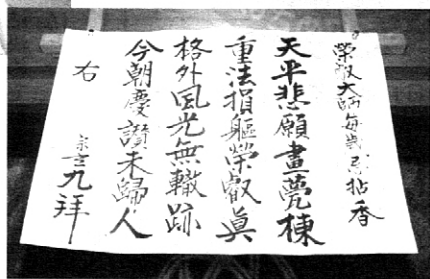 榮叡大師毎歳忌拈香
天平悲願畫甍棟
重法損軀榮叡眞
格外風光無轍跡
今朝慶讃未歸人
右
宗玄九拜